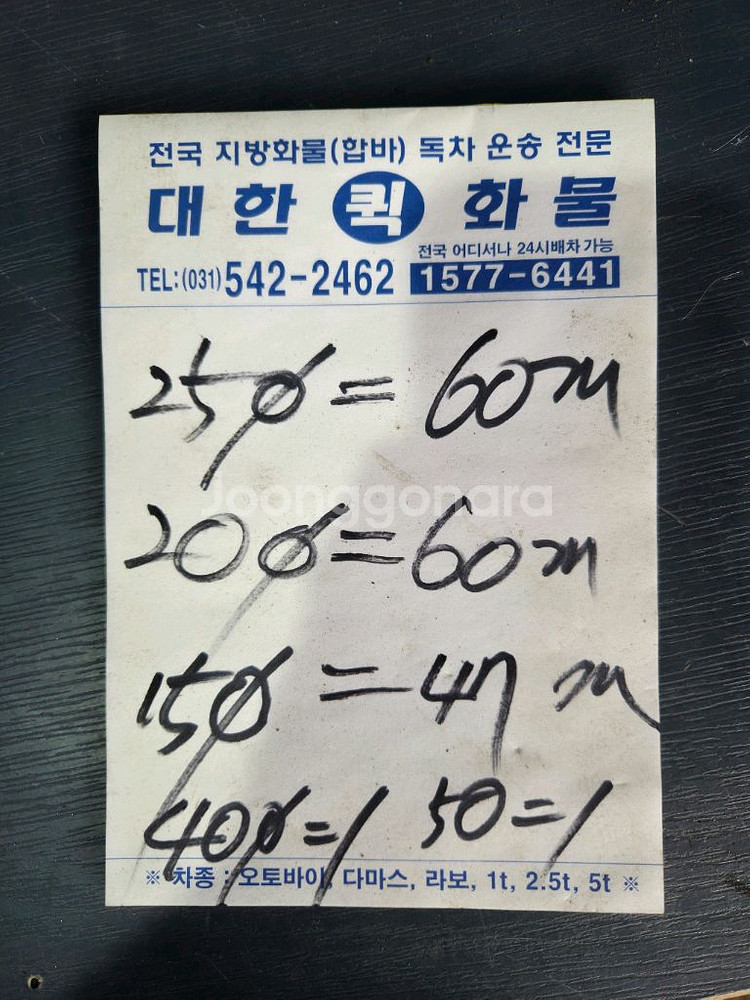 전국 지방화물(합바) 독차 운송 전문
대한 퀵 화물
전국 어디서나 24시배차가능
TEL:(031)542-2462 1577-6441
25ø = 60m
Joonggonara
20ø = 60m
15ø = 47 m
40ø = 1 50 = 1
※ 차종 : 오토바이, 다마스, 라보, 1t, 2.5t, 5t ※